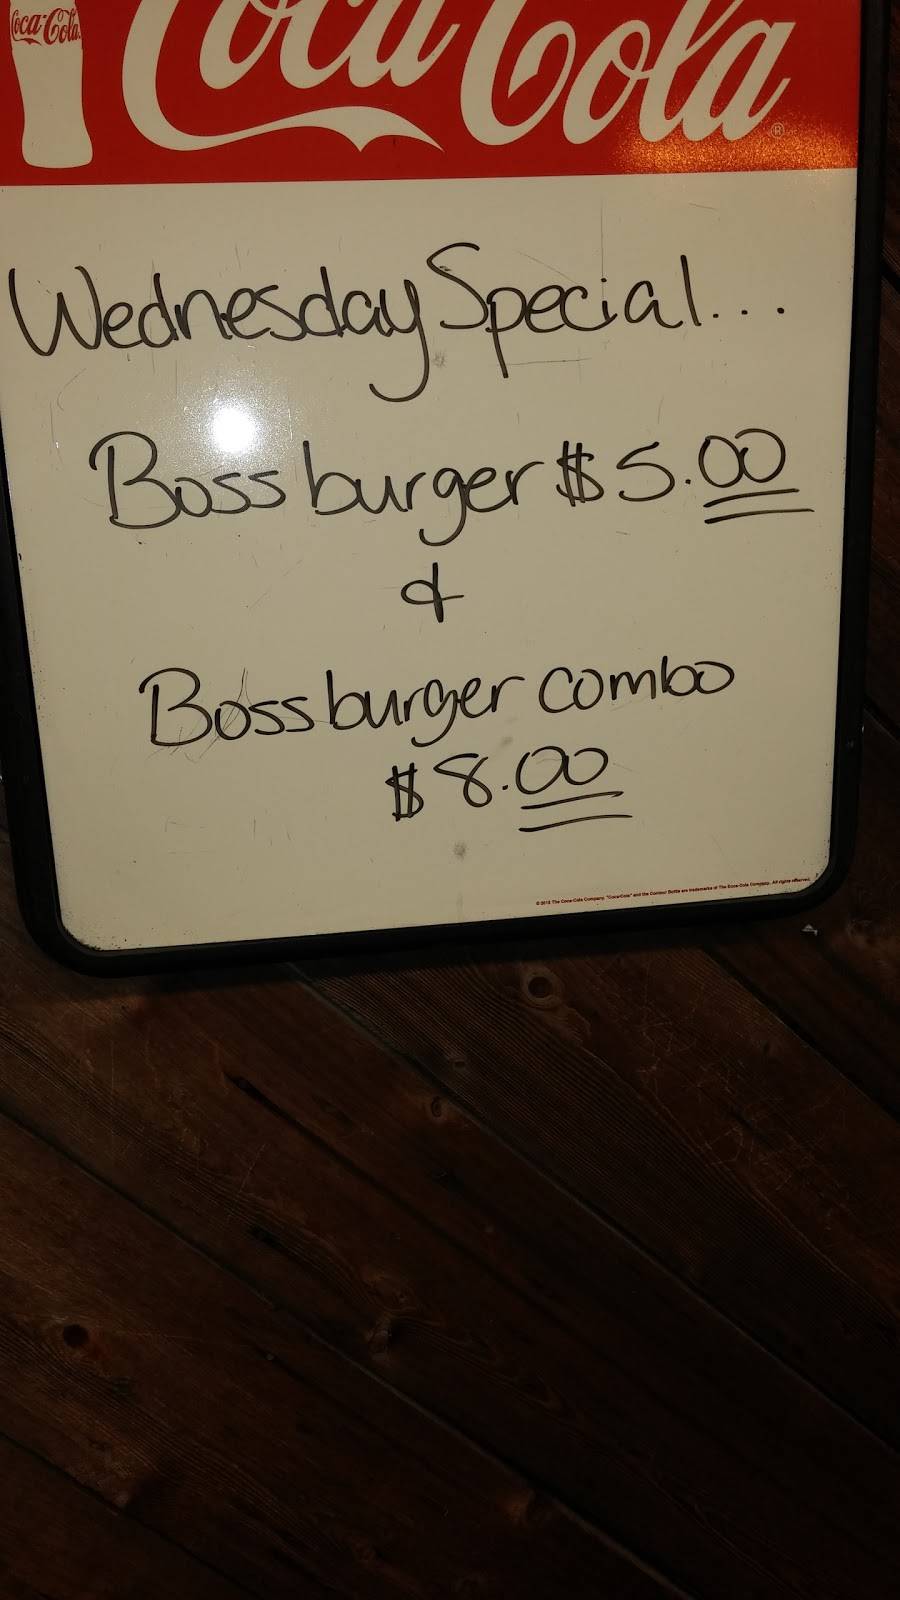 Coca-Cola
Coca Cola®
Wednesday Special...
Boss burger $5.00
&
Boss burger combo
$8.00
© 2015 The Coca-Cola Company. "Coca-Cola" and the Contour Bottle are trademarks of The Coca-Cola Company. All rights reserved.